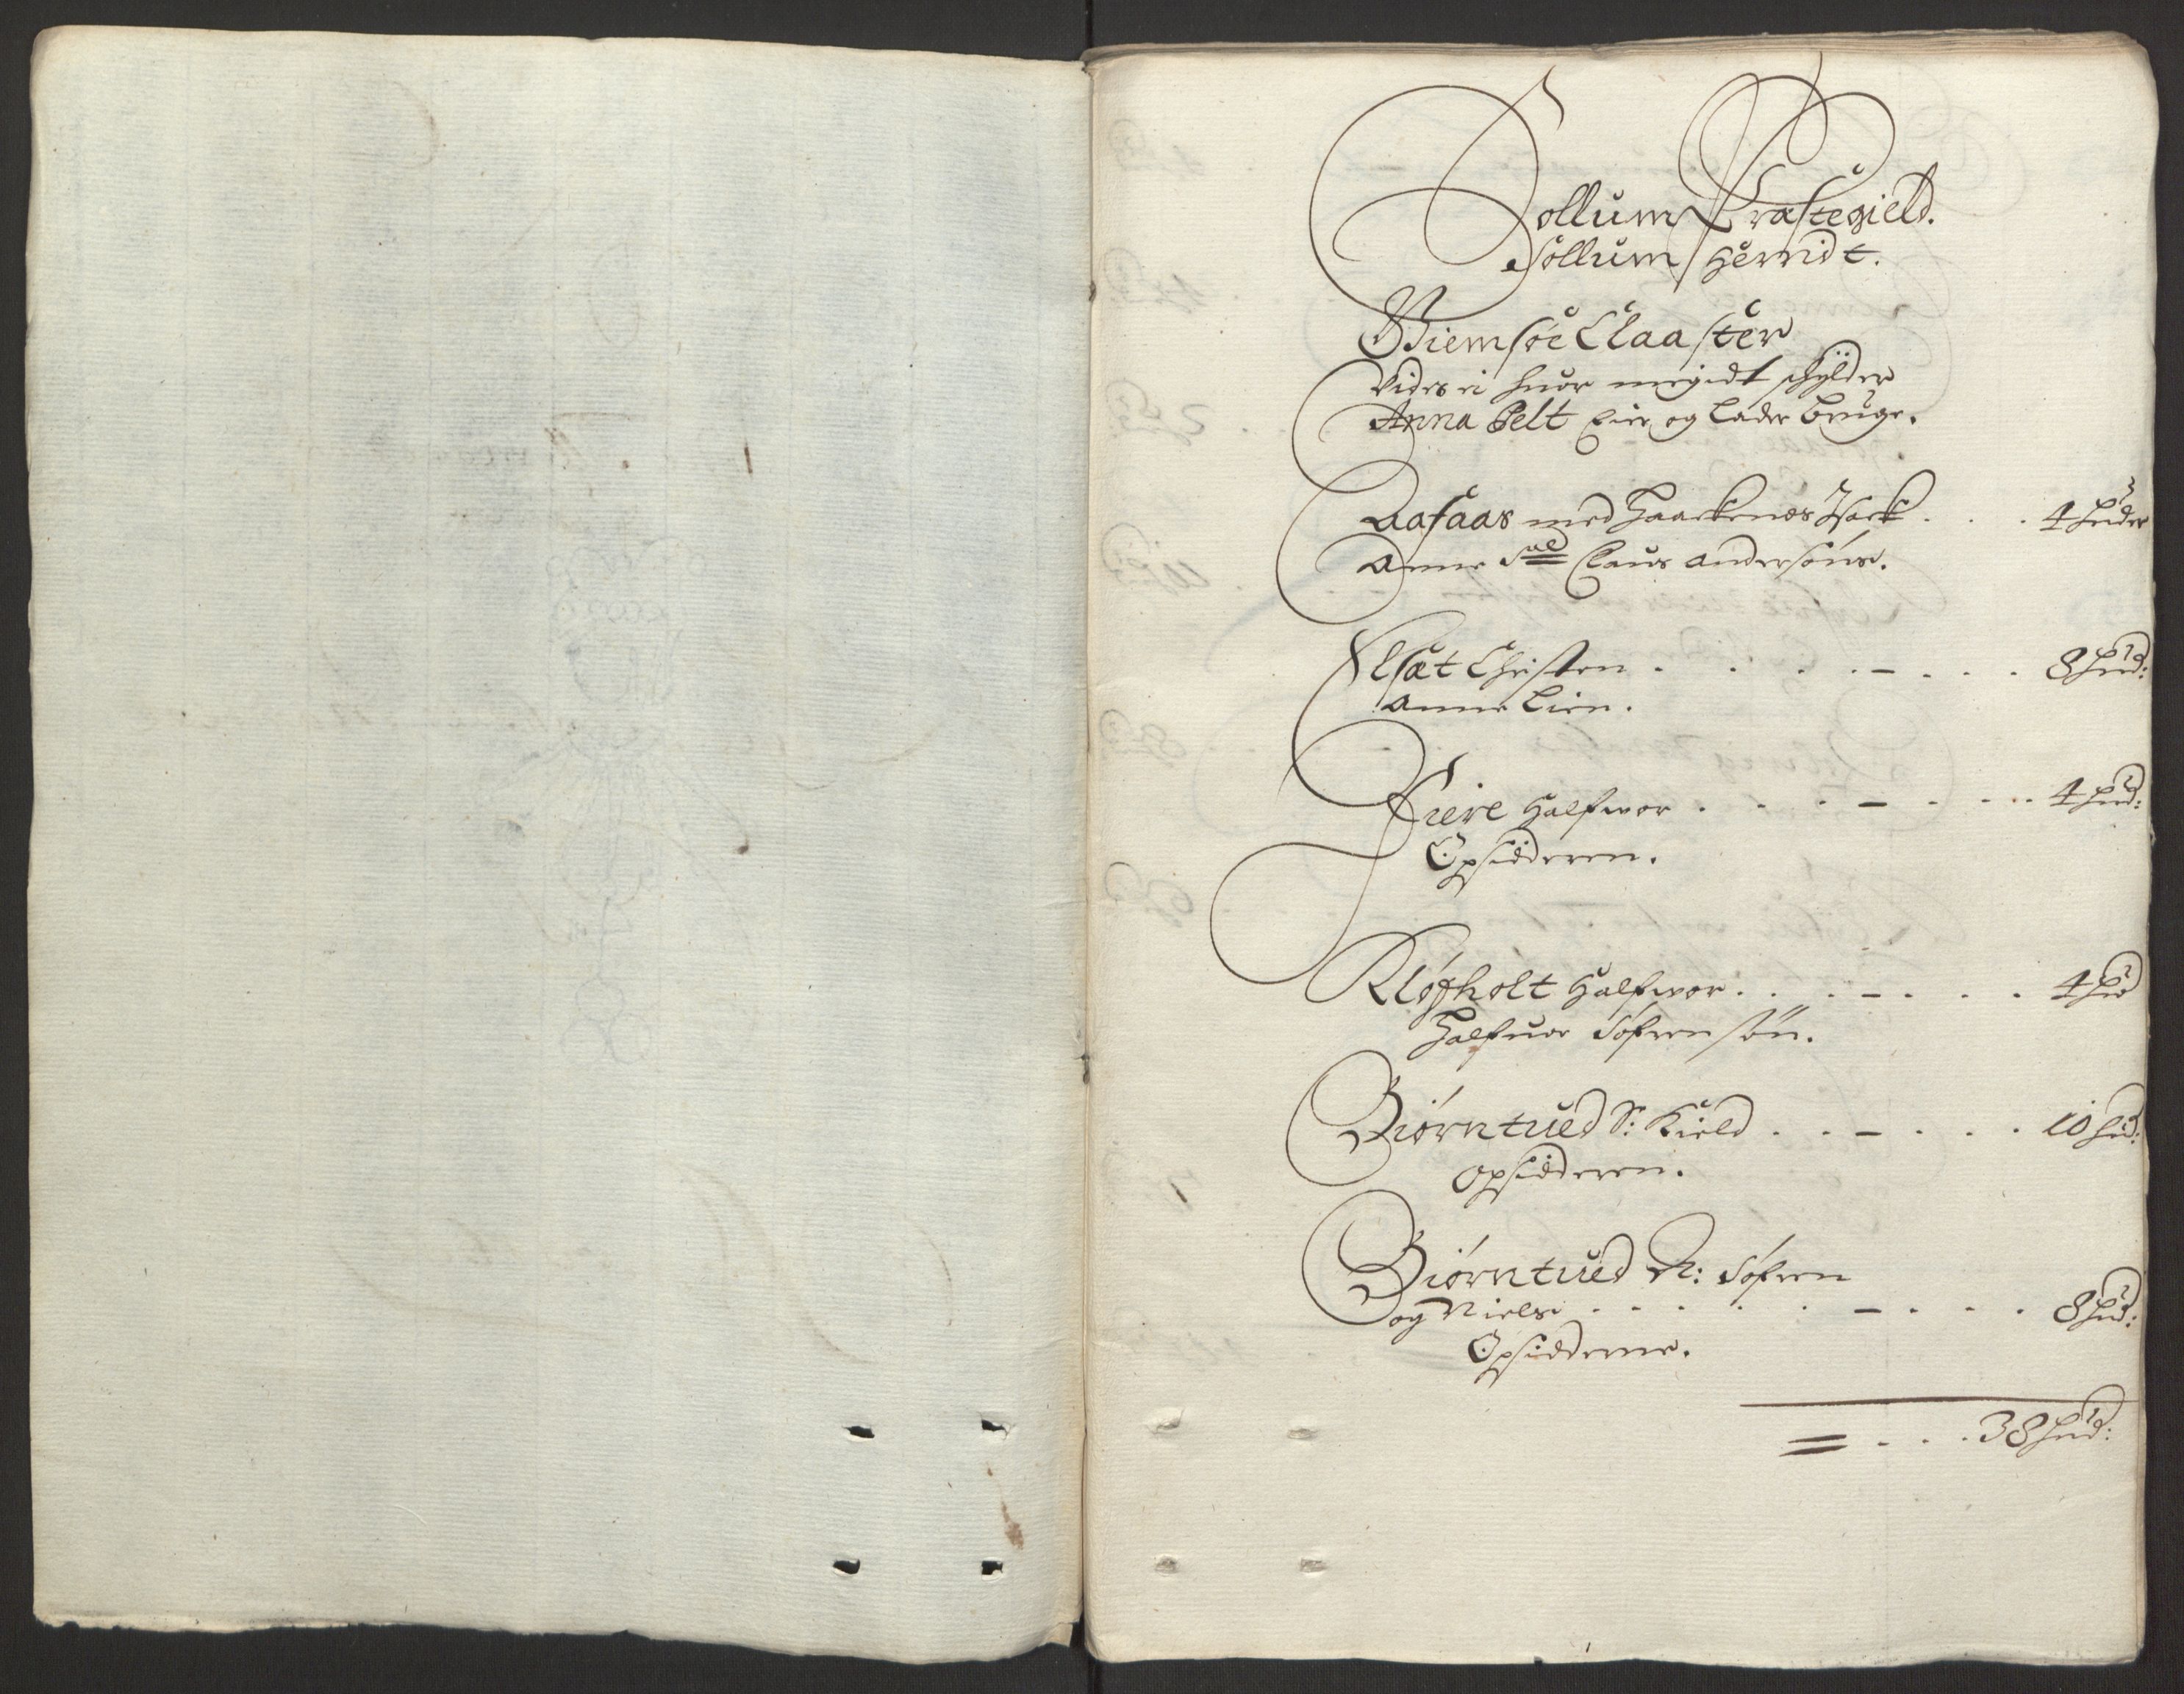 Sollum Præstegield.
Sollum Herridt.
Giemsöe Claaster
Vides ei huor megidt schylder
Anna Pelt Eier og lader bruge.
Aafaas med Haackenæs Isack . . . 4 huder
Anne Sal Claus Andersöns.
Elsæt Christen . . . . - . . . 8 hud:
Anne Lien.
Fiere Halfwor . . . . - . . . . 4 hud:
Opsidderen.
Kløfholt Halfwor . . . - . . . 4 hud
Halfuor Söfrensön.
Biørntued S: Kield . . - . . . 10 hud:
Opsidderen.
Biørntued N: Söfren
og Niels . . . . . - . . . 8 hud:
Opsidderne.
= . . . 38 hud: